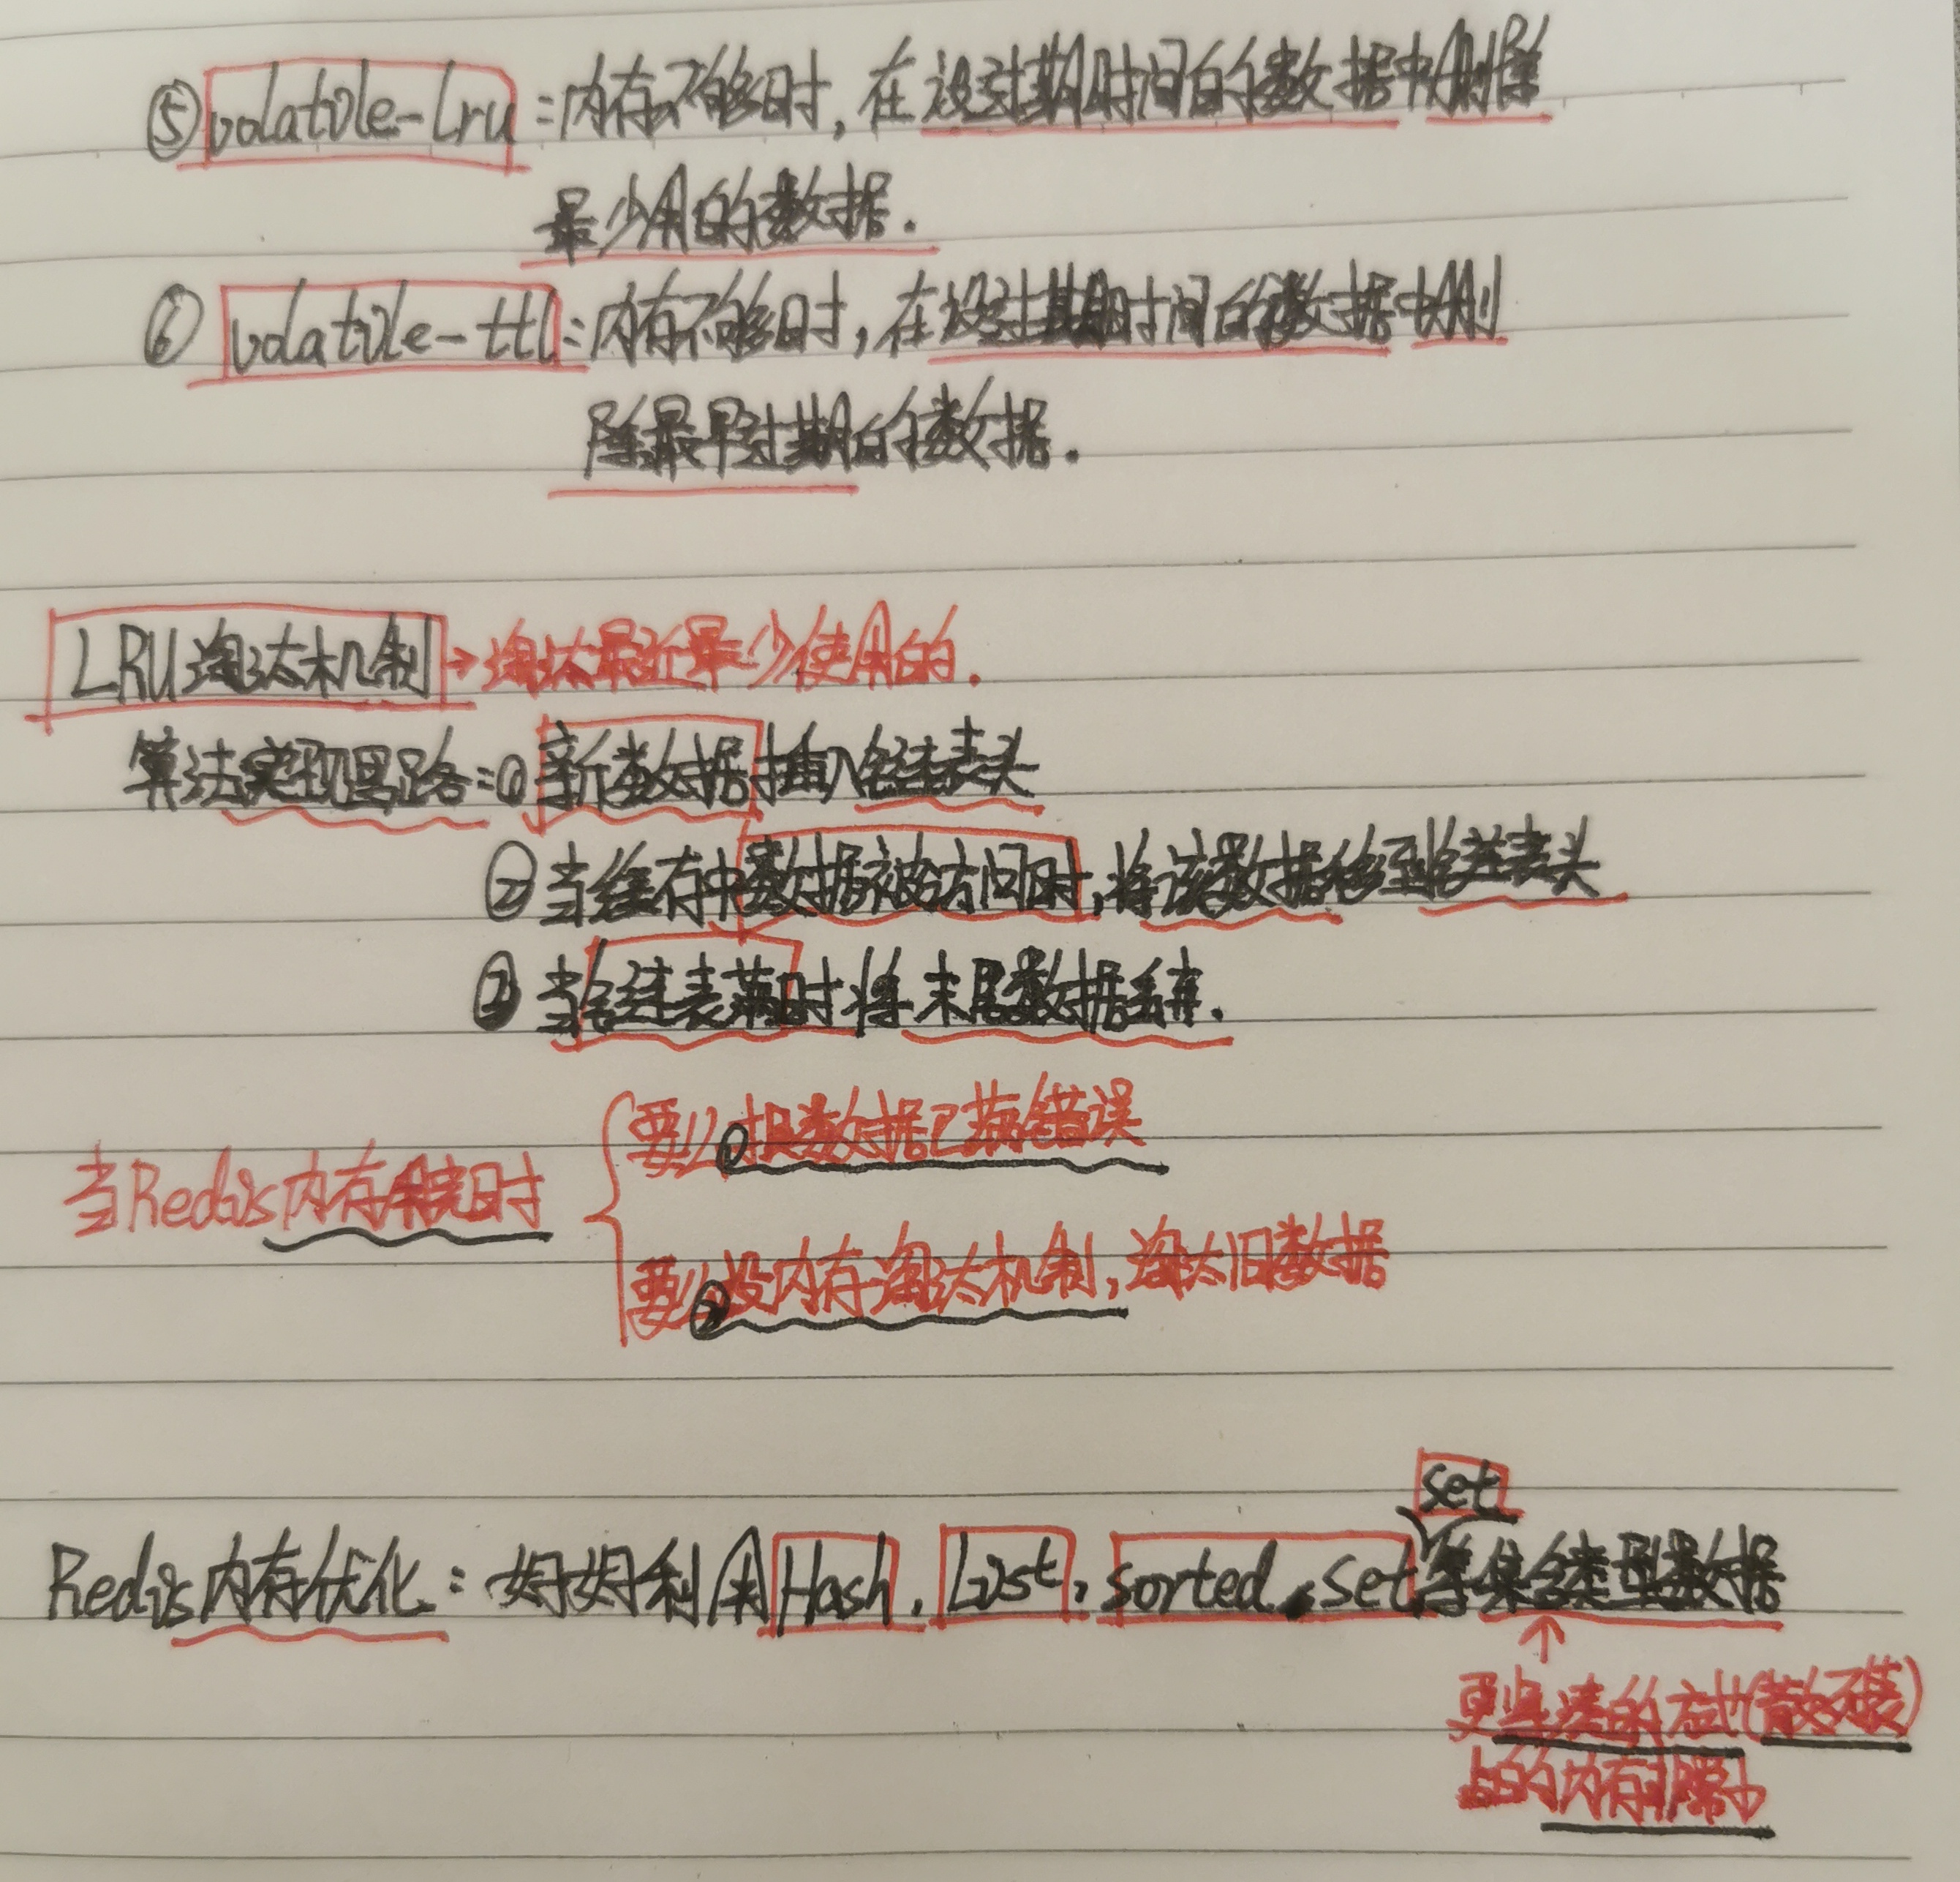 ⑤volatile-lru:内存不够时,在设过期时间的数据中删除
最少用的数据.
⑥volatile-ttl:内存不够时,在设过期时间的数据中删
除最早过期的数据.
LRU淘汰机制→淘汰最近最少使用的.
算法实现思路:①新数据插入链表头
②当缓存中数据被访问时,将该数据移到链表头
③当链表满时将末尾数据丢弃.
当Redis内存用完时
要么①报数据已满错误
要么②设内存淘汰机制,淘汰旧数据
set
Redis内存优化:好好利用Hash,List,sorted set等集合类型数据
更紧凑的方式(散列表)
占的内存非常小